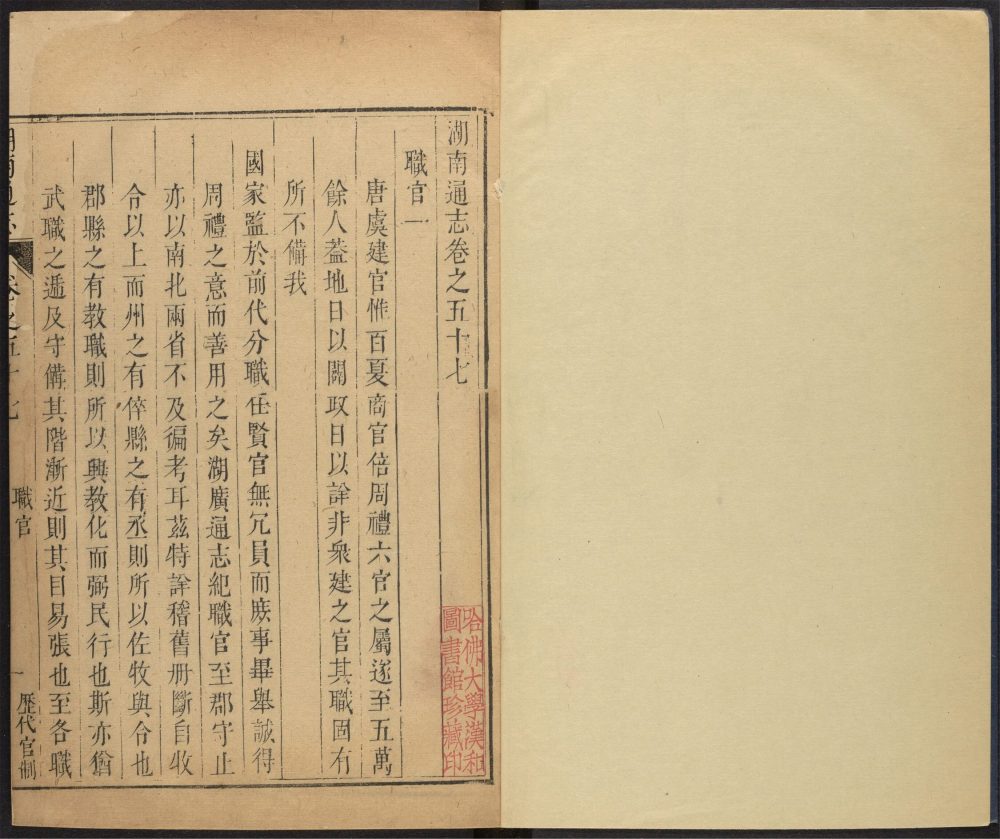 湖南通志卷之五十七
職官一
唐虞建官惟百夏商官倍周禮六官之屬遂至五萬
餘人葢地日以闢政日以詳非衆建之官其職固有
所不備我
國家監於前代分職任賢官無冗員而庶事畢舉誠得
周禮之意而善用之矣湖廣通志紀職官至郡守止
亦以南北兩省不及徧考耳茲特詳稽舊册斷自牧
令以上而州之有倅縣之有丞則所以佐牧與令也
郡縣之有教職則所以興教化而弼民行也斯亦猶
武職之遞及守備其階漸近則其目易張也至各職
湖南通志
卷之五十七
職官
一
歷代官制
哈佛大學漢和
圖書館珍藏印